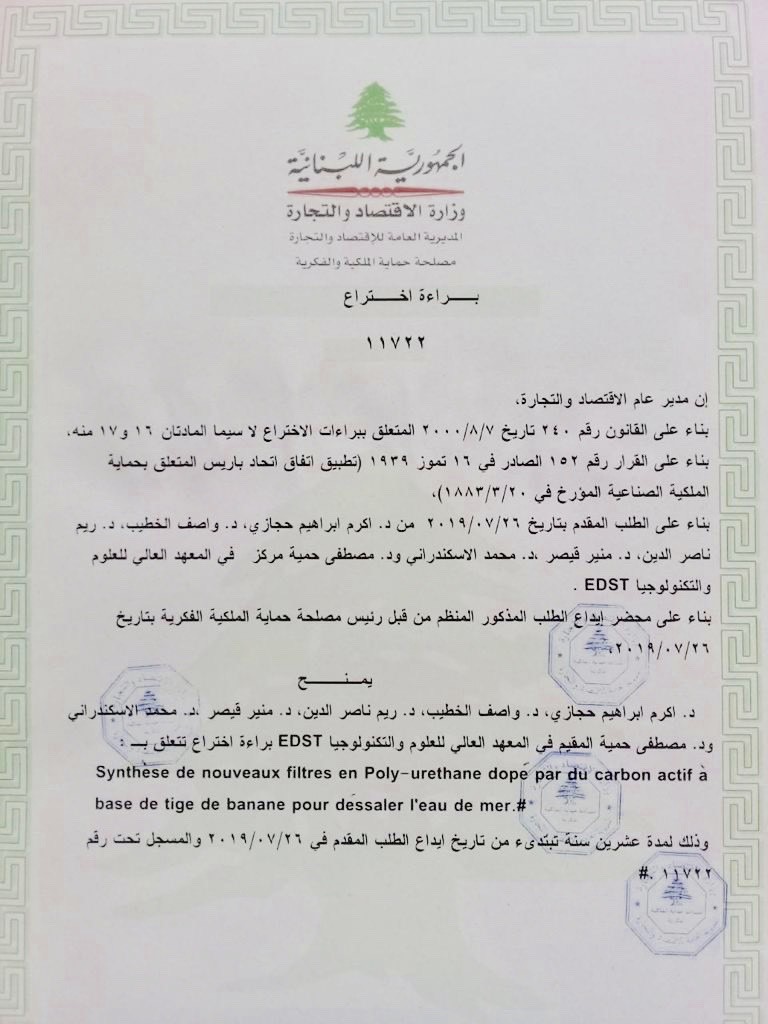 الجمهورية اللبنانية
وزارة الاقتصاد والتجارة
المديرية العامة للإقتصاد والتجارة
مصلحة حماية الملكية والفكرية
بــــراءة اخــــتراع
١١٧٢٢
إن مدير عام الاقتصاد والتجارة،
بناء على القانون رقم ٢٤٠ تاريخ ٢٠٠٠/٨/٧ المتعلق ببراءات الاختراع لا سيما المادتان ١٦ و١٧ منه،
بناء على القرار رقم ١٥٢ الصادر في ١٦ تموز ١٩٣٩ (تطبيق اتفاق اتحاد باريس المتعلق بحماية
الملكية الصناعية المؤرخ في ١٨٨٣/٣/٢٠)،
بناء على الطلب المقدم بتاريخ ٢٠١٩/٠٧/٢٦ من د. اكرم ابراهيم حجازي، د. واصف الخطيب، د. ريم
ناصر الدين، د. منير قيصر ،د. محمد الاسكندراني ود. مصطفى حمية مركز في المعهد العالي للعلوم
والتكنولوجيا EDST .
بناء على محضر إيداع الطلب المذكور المنظم من قبل رئيس مصلحة حماية الملكية الفكرية بتاريخ
٢٠١٩/٠٧/٢٦،
يمـــنـــح
د. اكرم ابراهيم حجازي، د. واصف الخطيب، د. ريم ناصر الدين، د. منير قيصر ،د. محمد الاسكندراني
ود. مصطفى حمية المقيم في المعهد العالي للعلوم والتكنولوجيا EDST براءة اختراع تتعلق بــ :
Synthèse de nouveaux filtres en Poly-urethane dopé par du carbon actif à
base de tige de banane pour dessaler l'eau de mer.#
وذلك لمدة عشرين سنة تبتدىء من تاريخ ايداع الطلب المقدم في ٢٠١٩/٠٧/٢٦ والمسجل تحت رقم
١١٧٢٢ .#